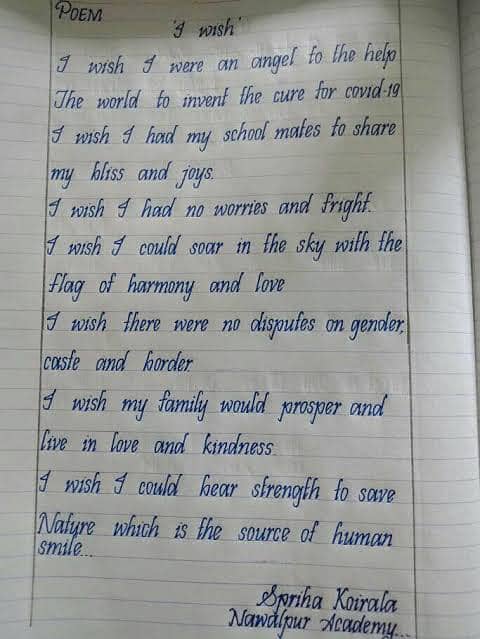 POEM
'I wish'
I wish I were an angel to the help
The world to invent the cure for covid-19
I wish I had my school mates to share
my bliss and joys.
I wish I had no worries and fright.
I wish I could soar in the sky with the
flag of harmony and love
I wish there were no disputes on gender,
caste and border
I wish my family would prosper and
live in love and kindness
I wish I could bear strength to save
Nature which is the source of human
smile...
Spriha Koirala
Nawalpur Academy...